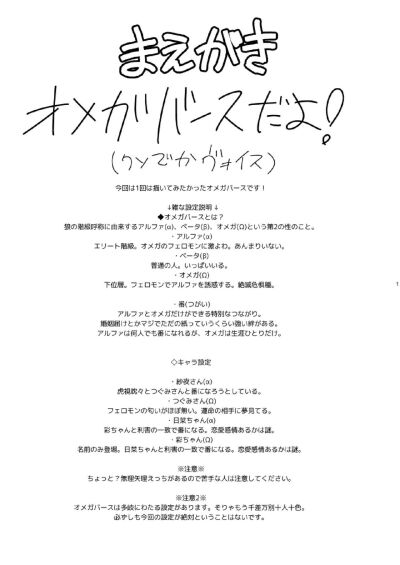 まえがき
オメガバースだよ!
(クソでかヴォイス)
今回は1回は描いてみたかったオメガバースです!
↓雑な設定説明↓
◆オメガバースとは?
狼の階級呼称に由来するアルファ(α)、ベータ(β)、オメガ(Ω)という第2の性のこと。
・アルファ(α)
エリート階級。オメガのフェロモンに激よわ。あんまりいない。
・ベータ(β)
普通の人。いっぱいいる。
・オメガ(Ω)
下位層。フェロモンでアルファを誘惑する。絶滅危惧種。
・番(つがい)
アルファとオメガだけができる特別なつながり。
婚姻届けとかマジでただの紙っていうくらい強い絆がある。
アルファは何人でも番になれるが、オメガは生涯ひとりだけ。
1
◇キャラ設定
・紗夜さん(α)
虎視眈々とつぐみさんと番になろうとしている。
・つぐみさん(Ω)
フェロモンの匂いがほぼ無い。運命の相手に夢見てる。
・日菜ちゃん(α)
彩ちゃんと利害の一致で番になる。恋愛感情あるかは謎。
・彩ちゃん(Ω)
名前のみ登場。日菜ちゃんと利害の一致で番になる。恋愛感情あるかは謎。
※注意※
ちょっと?無理矢理えっちがあるので苦手な人は注意してください。
※注意2※
オメガバースは多岐にわたる設定があります。そりゃもう千差万別十人十色。
必ずしも今回の設定が絶対ということはないです。